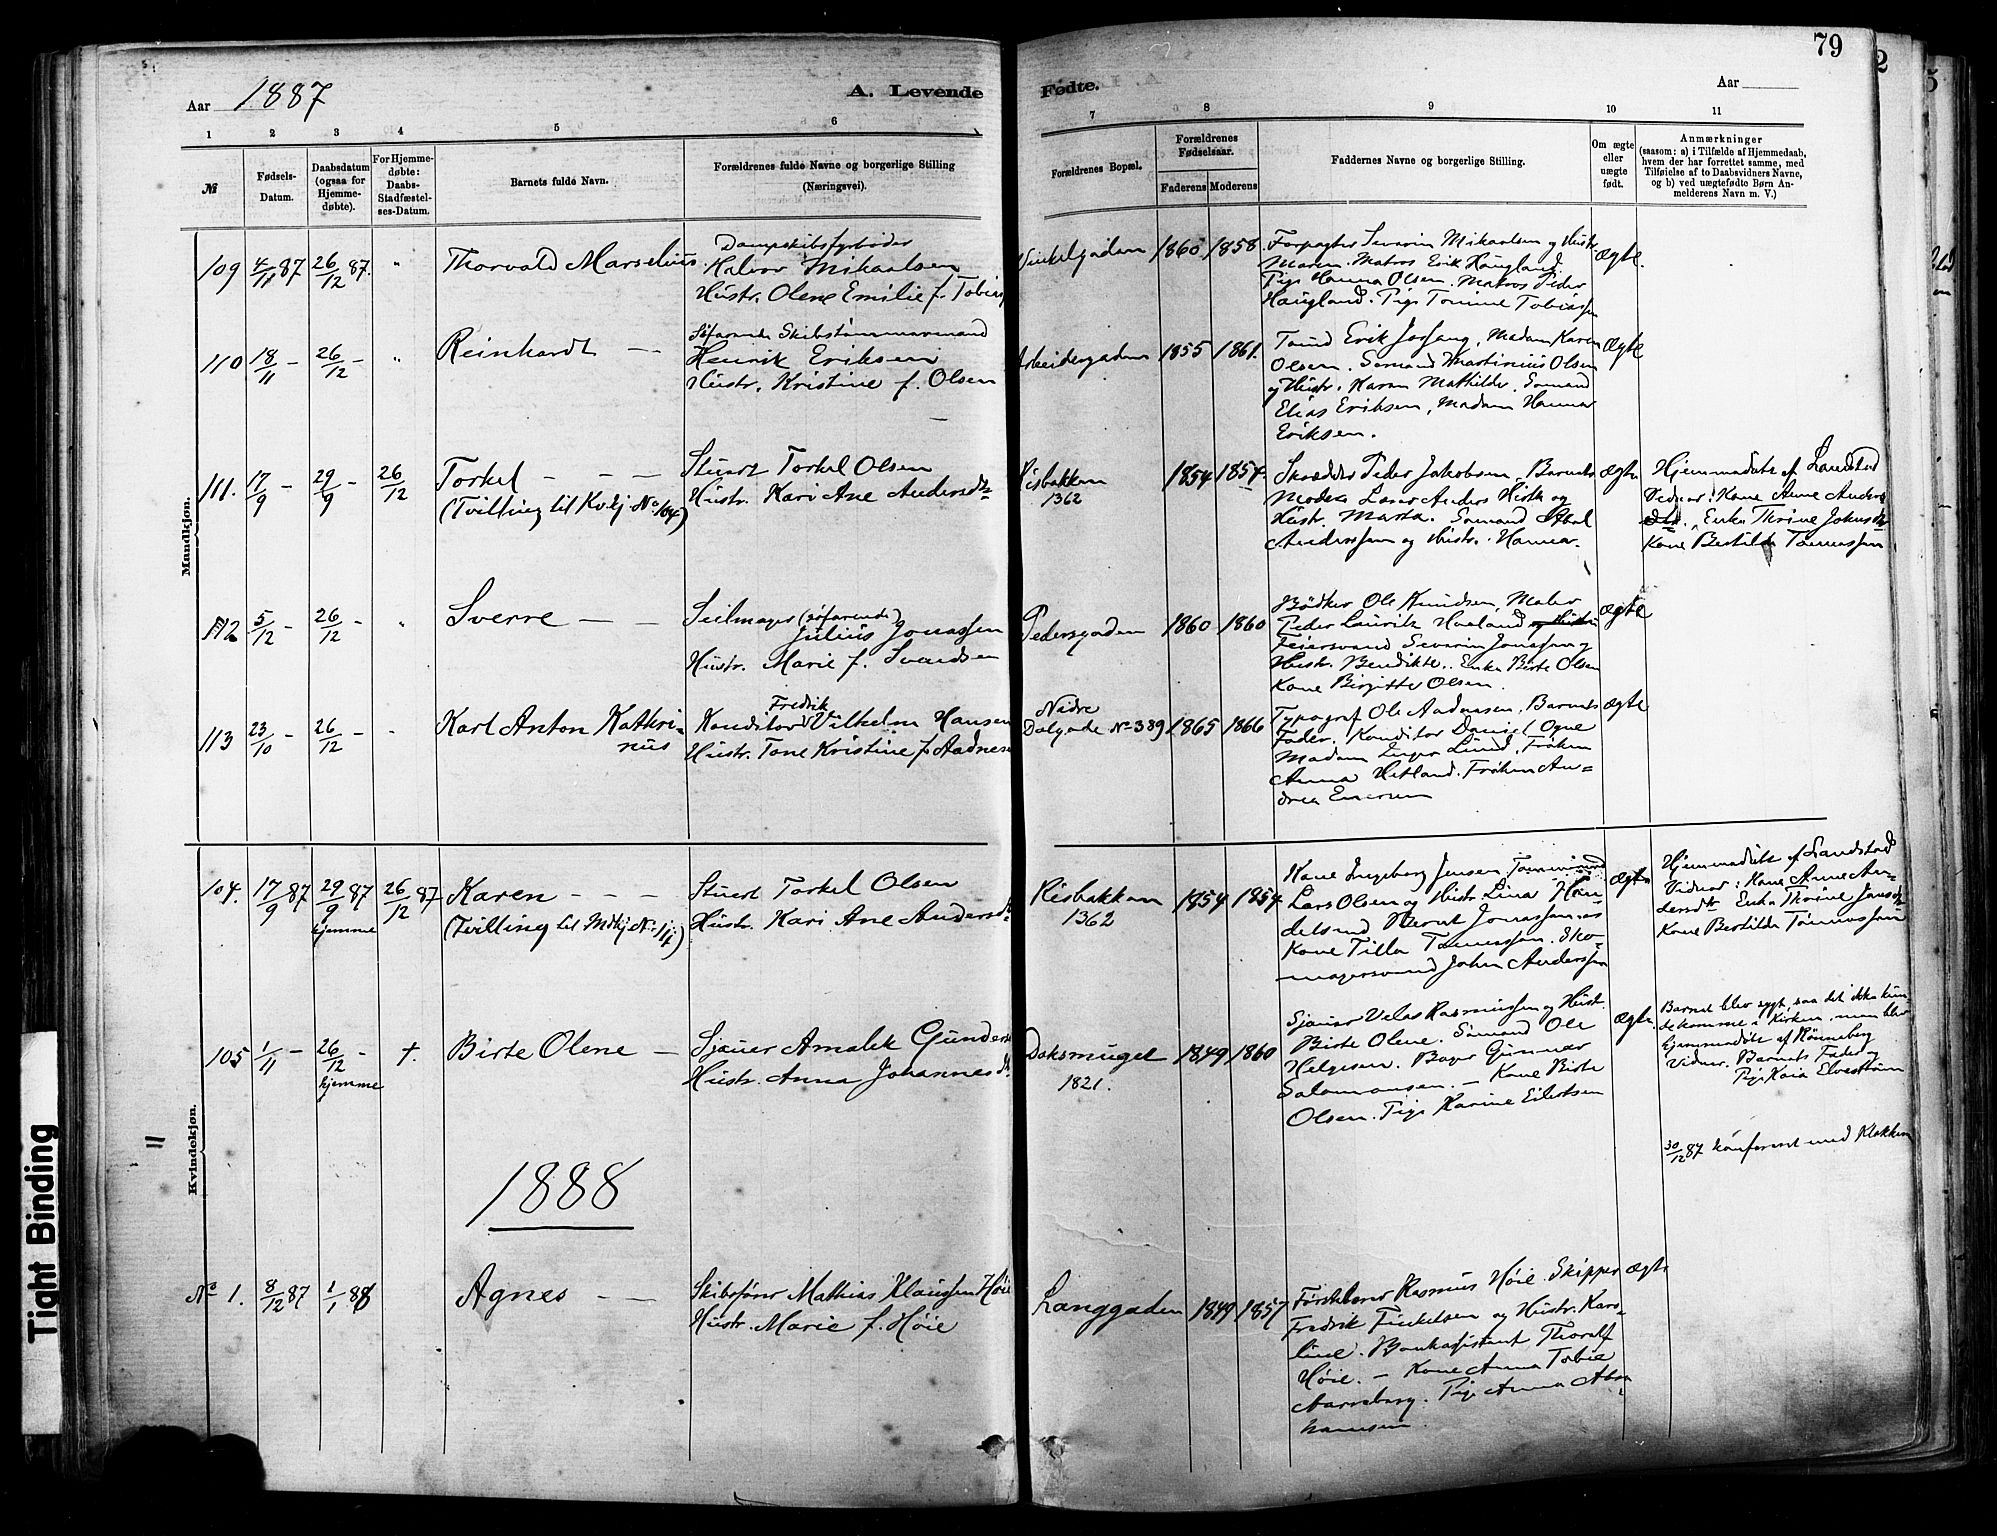 79
Aar 1887
A. Levende
Fødte.
Aar
1 2 3 4 5 6 7 8 9 10 11
№
Fødsels-
Datum.
Daabsdatum
(ogsaa for
Hjemme-
døbte).
For Hjemme-
døbte:
Daabs-
Stadfæstel-
ses-Datum.
Barnets fulde Navn.
Forældrenes fulde Navne og borgerlige Stilling
(Næringsvei).
Forældrenes Bopæl.
Forældrenes
Fødselsaar.
Faderens Moderens
Faddernes Navne og borgerlige Stilling.
Om ægte
eller
uægte
født.
Anmærkninger
(saasom: a) i Tilfælde af Hjemmedaab,
hvem der har forrettet samme, med
Tilføielse af to Daabsvidners Navne,
og b) ved uægtefødte Børn An-
melderens Navn m. V.)
Mandkjøn.
109 4/11 87 26/12 87. " Thorvald Marselius.
Dampskibsfyrbøder
Halvor Mikaelsen
Hustr. Olene Emilie f. Tobias
Vinkelgaden 1860 1858
Forpagter Severin Mikaelsen og Hustr
Maren. Matros Erik Haugland
Pige Hanna Olsen. Matros Peder
Haugland. Pige Tomine Tobiassen
Ægte
110 18/11 - 26/12 - " Reinhardt — —
Søfarende Skibstømmermand
Henrik Eriksen
Hustr. Kristine f. Olsen
Arbeidergaden 1855 1861.
Erik Jossang, Madam Karen
Olsen. Sømand Martinius Olsen
og Hustr. Karen Mathilde. Sømand
Elias Eriksen, Madam Hanna
Eriksen.
Ægte
111. 17/9 - 29/9 - 26/12 Torkel — —
(Tvilling til Kvkj. No 104)
Stuert Torkel Olsen
Hustr. Kari Ane Andersdtr
Risbakken
1362
1854 1854.
Skrædder Peder Jakobsen, Barnets
Moder Anders Hirth og
Hustr. Marta. Sømand Abel
Anderssen og Hustr. Hanna.
Ægte
Hjemmedøbt af Landstad
Vidner: Kone Anne Anders
dtr. Enke Thrine Johnsdtr
Kone Bertilde Tønnessen
112 5/12 - 26/12 - " Sverre — —
Seilmager (søfarende)
Julius Jonassen
Hustr. Marie f. Svendsen
Pedersgaden 1860 1860
Bødker Ole Knudsen, Maler
Peder Laurik Haaland og Hustr
Feiersvend Severin Jonassen og
Hustr. Bendikte. Enke Birte Olsen
Kone Birgitte Olsen.
Ægte
113 23/10 - 26/12 - " Karl Anton Kathri-
nus
Fredrik
Konditor Vilhelm Hansen
Hustr. Tone Kristine f. Aadnesen
Nedre
Dalgade No 389 1865 1866
Typograf Ole Aadnesen, Barnets
Fader, Konditor Daniel Ogne
Madam Inger Lund, Frøken
Anna Hetland. Frøken An-
drea Enersen
ægte
Kvindekjøn.
104. 17/9 87 29/9 87 26/12 87 Karen — — —
hjemme
(Tvilling til Mdkj. No 111)
Stuert Torkel Olsen
Hustr. Kari Ane Andersdtr
Risbakken
1362
1854 1854
Kone Ingeborg Jensen Tømmermd
Lars Olsen og Hustr. Lina Han-
delsmd Nerat Jonassen og
Kone Tilla Tønnessen. Sko-
magersvend John Anderssen
Ægte
Hjemmedøbt af Landstad
Vidner: Kone Anne An-
dersdtr. Enke Thrine Jansdtr
Kone Bertilde Tønnessen
105 1/11 - 26/12 - †. Birte Olene —
hjemme
Sjauer Amalek Gunders
Hustr. Anna Johannesdtr
Doksmuget
1821.
1849 1860
Sjauer Velas Rasmussen og Hust.
Birte Olene. Sømand Ole
Helgesen. Bager Gunnar
Salomonsen. — Kone Birte
Olsen. Pige Karine Eilertsen
Ægte
Barnet blev sygt, saa det ikke kun-
de komme i Kirken, men blev
hjemmedøbt af Rønneberg
Vidner: Barnets Fader og
Pige Kaia Elvestrøm
30/12 87 konfereret med Klokken
11
1888
No 1. 8/12 87 1/1 88 Agnes — —
Skibsfører Mathias Klaussen Høie
Hustr. Marie f. Høie
Langgaden 1849 1857
Rasmus Høie. Skipper
Fredrik Finkelsen og Hustr. Karo-
line. Bankassistent Thoralf
Høie. — Kone Anna Tobie
Aarreberg. Pige Anna Abra
hamsen.
ægte
Tight Binding